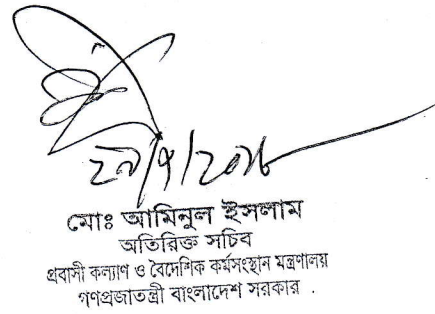 মোঃ আমিনুল ইসলাম
অতিরিক্ত সচিব
প্রবাসী কল্যাণ ও বৈদেশিক কর্মসংস্থান মন্ত্রণালয়
গণপ্রজাতন্ত্রী বাংলাদেশ সরকার .